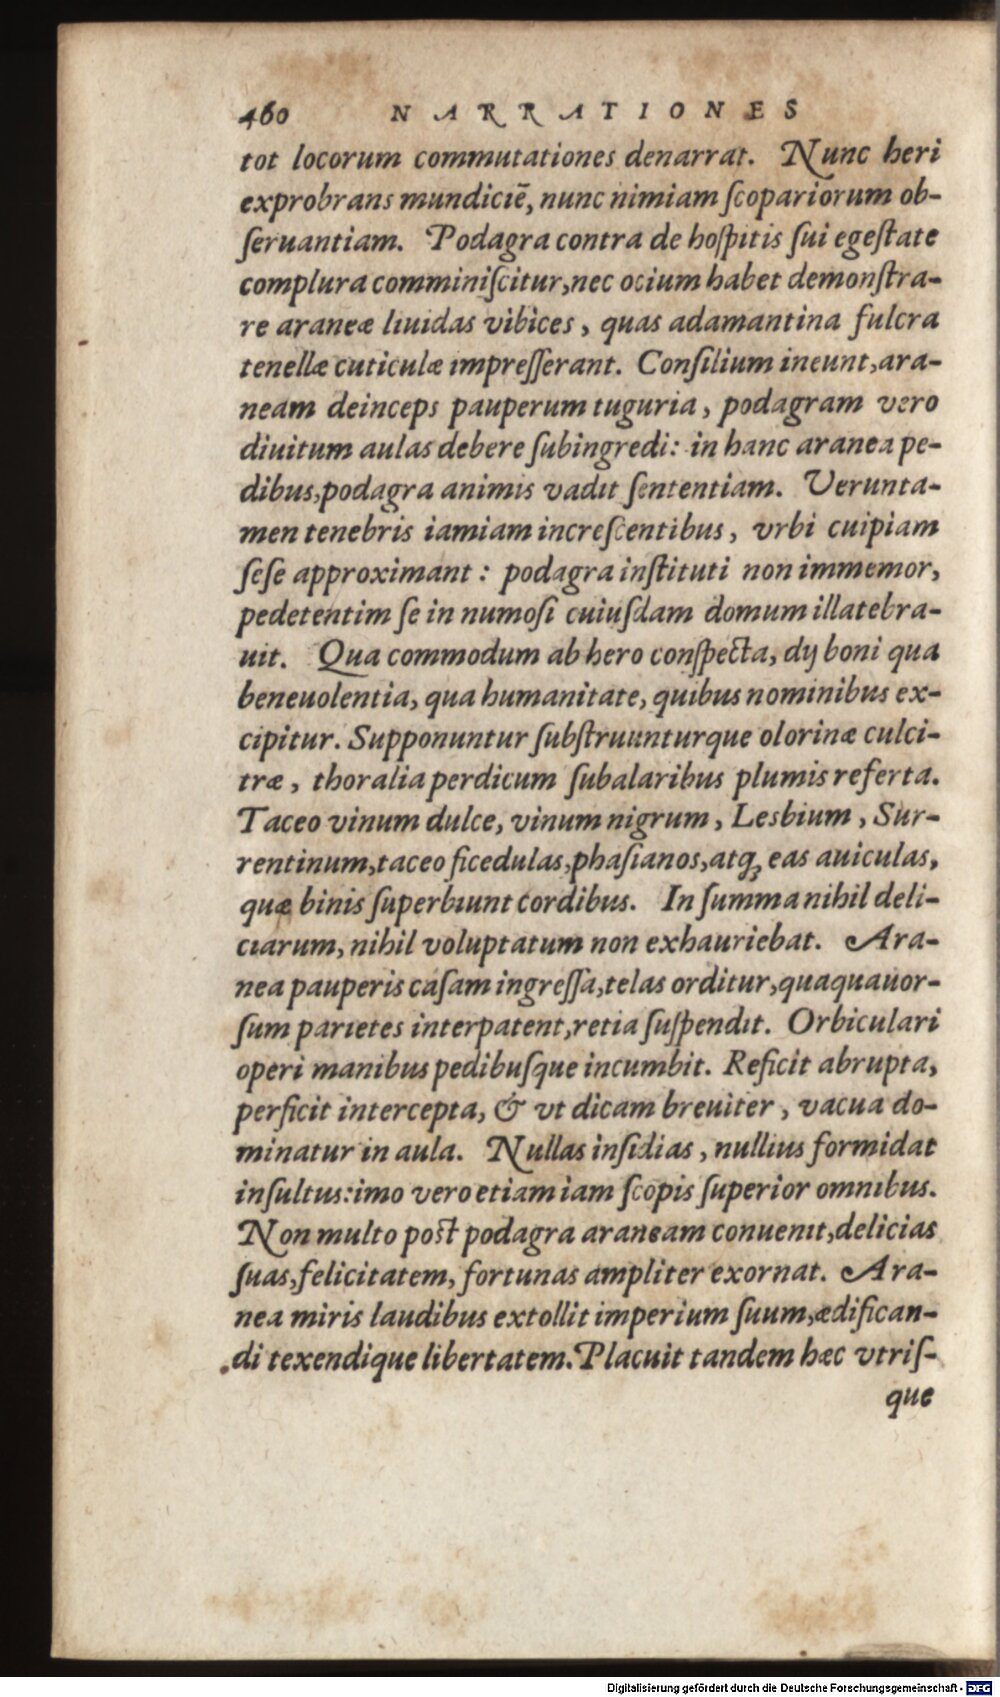 460 NARRATIONES
tot locorum commutationes denarrat. Nunc heri
exprobrans mundiciē, nunc nimiam ſcopariorum ob-
ſeruantiam. Podagra contra de hoſpitis ſui egeſtate
complura comminiſcitur, nec ocium habet demonſtra-
re araneæ liuidas vibices, quas adamantina fulcra
tenellæ cuticulæ impreſſerant. Conſilium ineunt, ara-
neam deinceps pauperum tuguria, podagram vero
diuitum aulas debere ſubingredi: in hanc aranea pe-
dibus, podagra animis vadit ſententiam. Verunta-
men tenebris iamiam increſcentibus, vrbi cuipiam
ſeſe approximant: podagra inſtituti non immemor,
pedetentim ſe in numoſi cuiuſdam domum illatebra-
uit. Qua commodum ab hero conſpecta, dij boni qua
beneuolentia, qua humanitate, quibus nominibus ex-
cipitur. Supponuntur ſubſtruunturque olorinæ culci-
træ, thoralia perdicum ſubalaribus plumis referta.
Taceo vinum dulce, vinum nigrum, Lesbium, Sur-
rentinum, taceo ficedulas, phaſianos, atq́; eas auiculas,
quæ binis ſuperbiunt cordibus. In ſumma nihil deli-
ciarum, nihil voluptatum non exhauriebat. Ara-
nea pauperis caſam ingreſſa, telas orditur, quaquauor-
ſum parietes interpatent, retia ſuſpendit. Orbiculari
operi manibus pedibuſque incumbit. Reficit abrupta,
perficit intercepta, & vt dicam breuiter, vacua do-
minatur in aula. Nullas inſidias, nullius formidat
inſultus: imo vero etiam iam ſcopis ſuperior omnibus.
Non multo poſt podagra araneam conuenit, delicias
ſuas, felicitatem, fortunas ampliter exornat. Ara-
nea miris laudibus extollit imperium ſuum, ædifican-
di texendique libertatem. Placuit tandem hæc vtriſ-
que
Digitalisierung gefördert durch die Deutsche Forschungsgemeinschaft - DFG